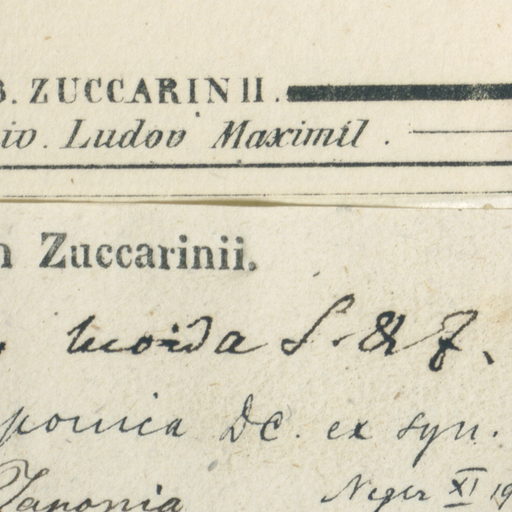 B. ZUCCARINII.
iv. Ludov Maximil.
n Zuccarinii.
S. & Z.
ponica DC. ex syn.
Japonia Neger XI 19